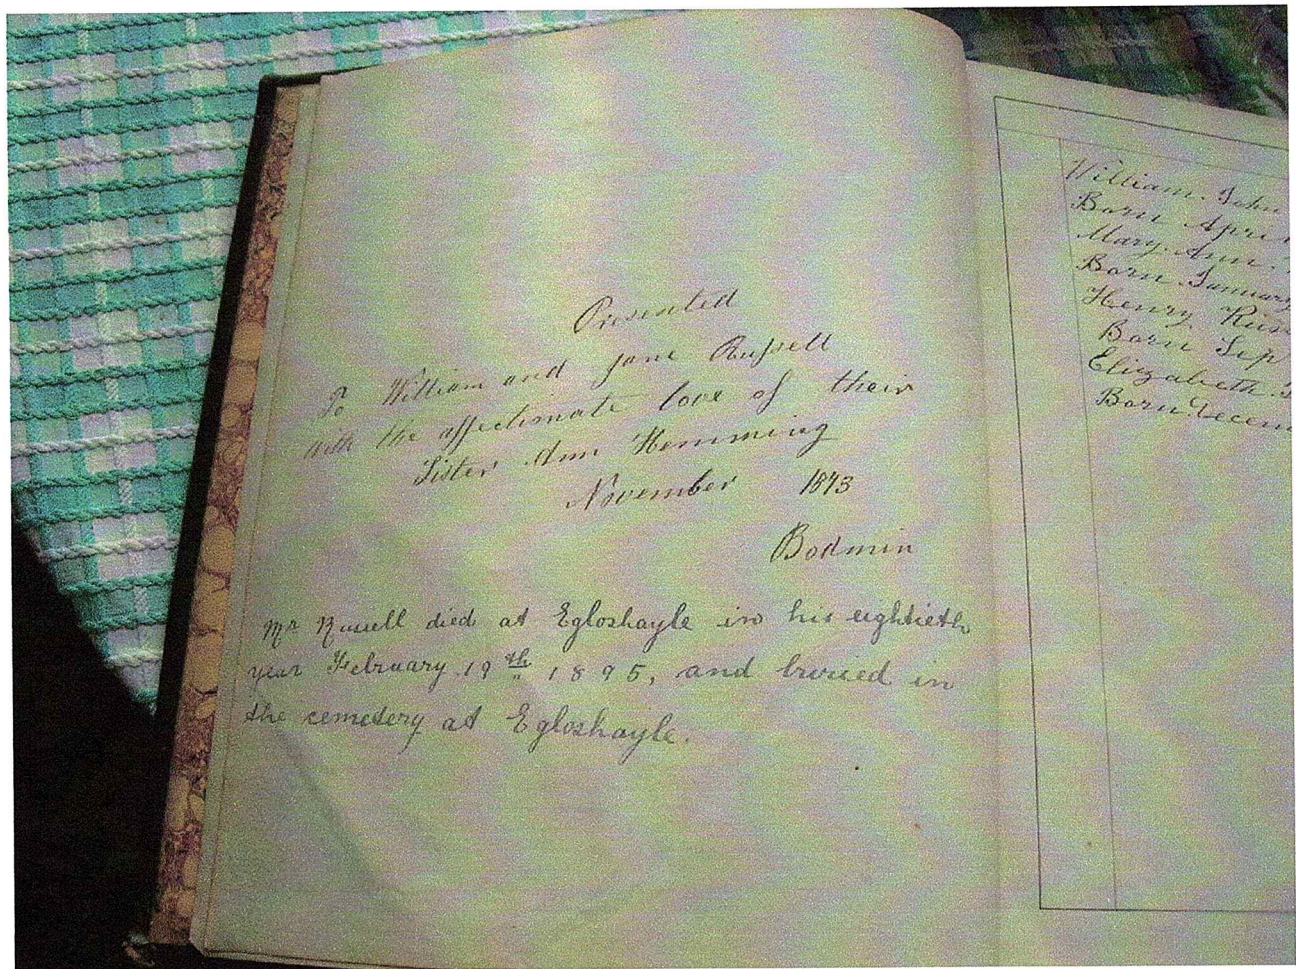 Presented
To William and Jane Russell
with the affectionate love of their
Sister Ann Hemming
November 1873
Bodmin
Mr Russell died at Egloshayle in his eightieth
year February 19th 1895, and buried in
the cemetery at Egloshayle.
William John
Born April
Mary Ann
Born January
Henry
Born Sep
Elizabeth
Born Decem